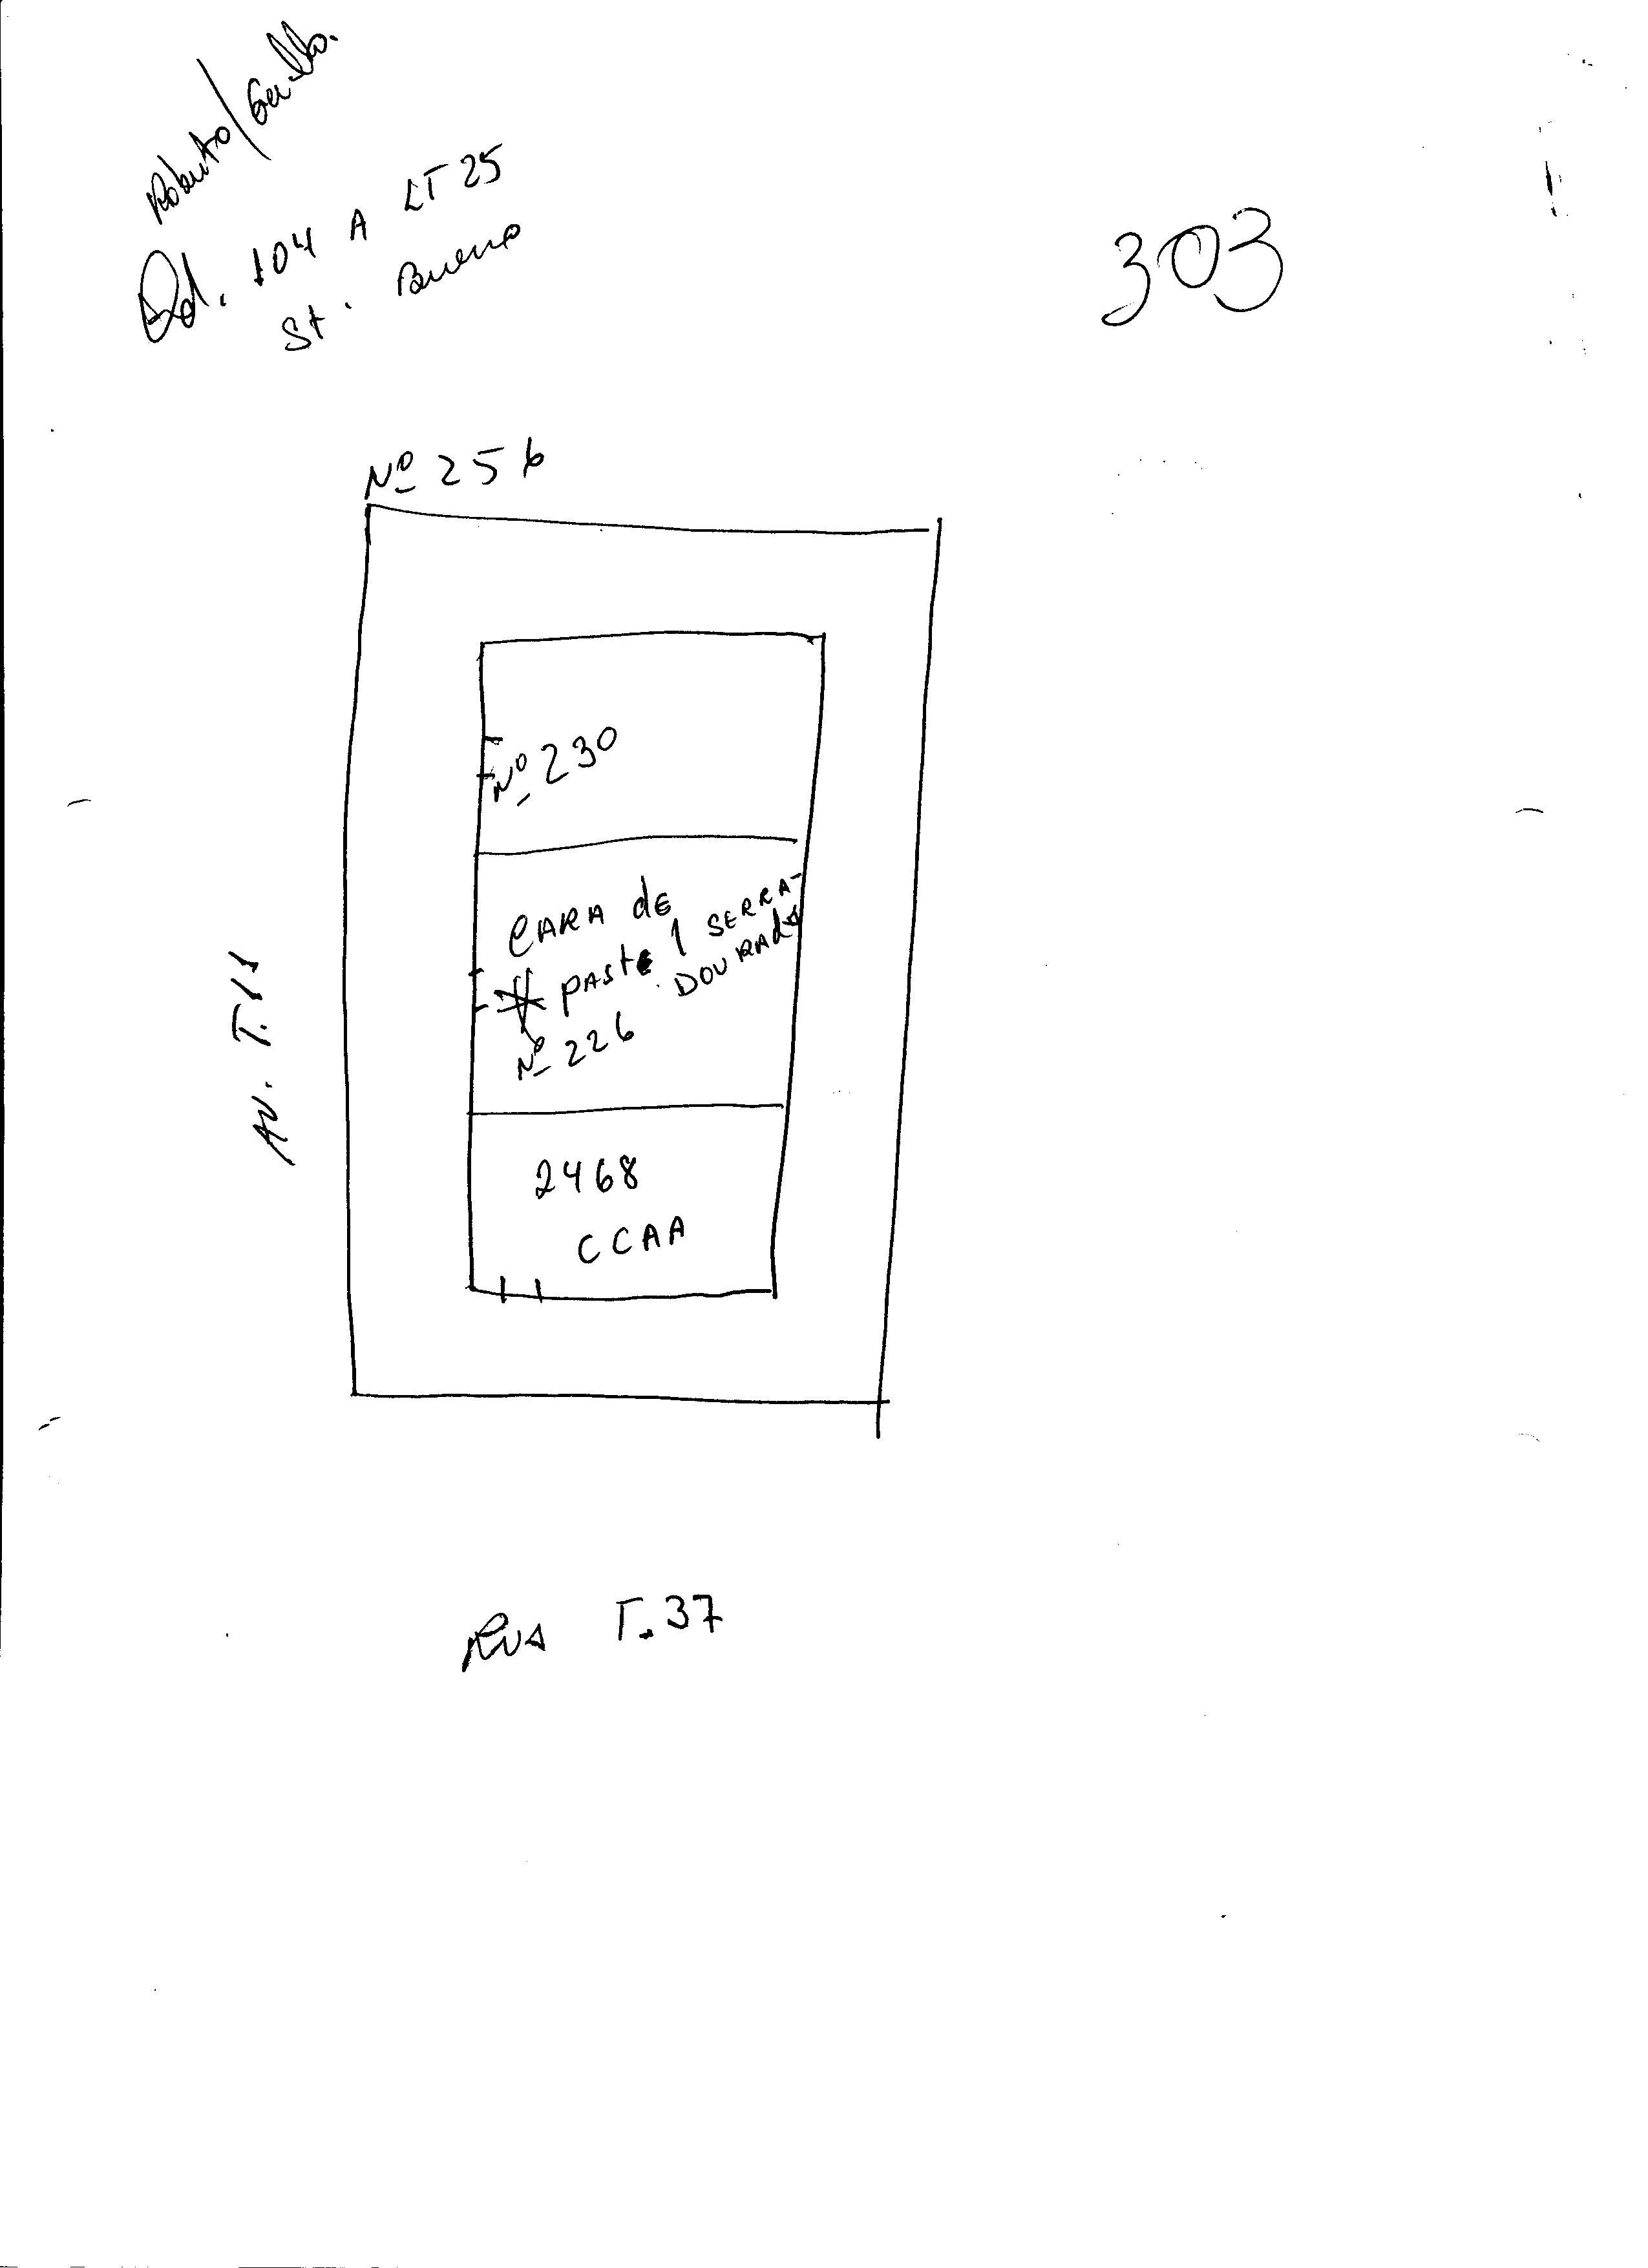 Roberto/
Qd. 104 A LT 25
St. Bueno
303
Nº 256
Nº 230
CARA de
PASTEL SERRA-
DOURADA
Nº 226
2468
CCAA
AV. T.11
RUA T.37